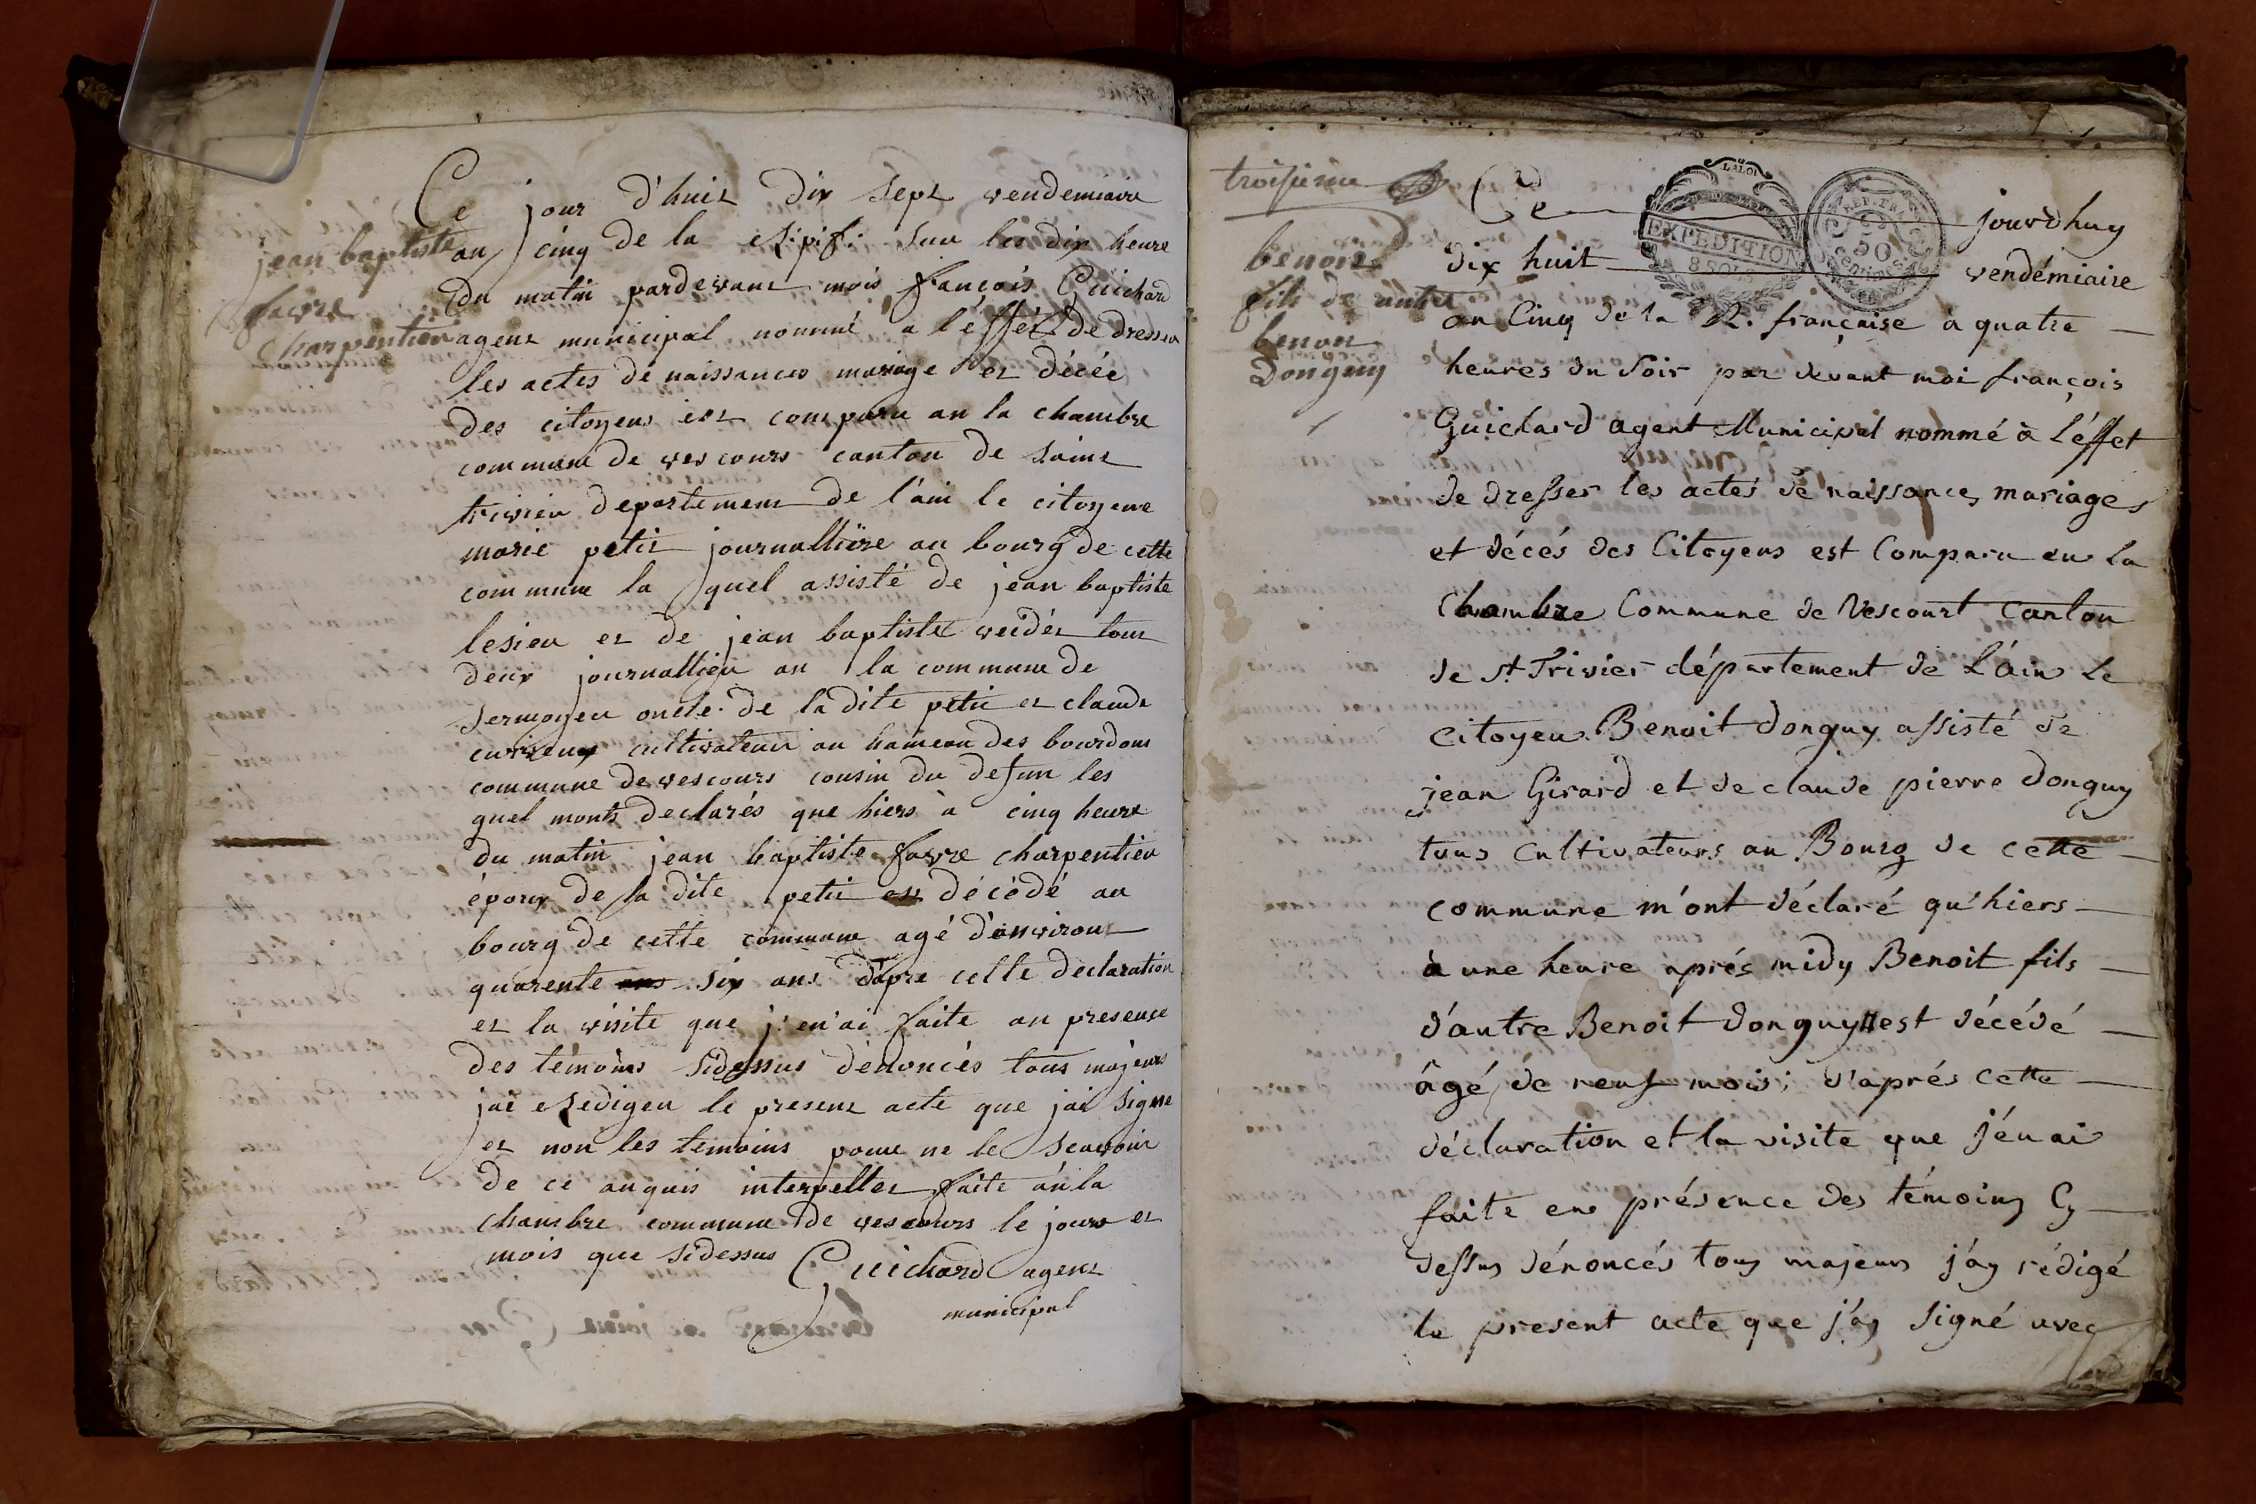 Ce jour d'huit dix sept vendemiaire
jean baptiste
favre
Charpentier
an cinq de la R.p.f. sur les dix heure
du matin pardevant mois françois Guichard
agent municipal nommé a l'éffét de dresser
les actes de naissances mariage et décéé
des citoyens est comparu an la chambre
commune de vescours canton de saint
trivier departement de l'ain le citoyene
marie petit journallière au bourg de cette
commune la quel assisté de jean baptiste
lesieu et de jean baptiste verdét tout
deux journallieu an la commune de
sermoyer oncle de la dite petit et claude
curveux cultivateur au hameau des bourdons
commune de vescours cousin du defun les
quel monts declarés que hiers à cinq heure
du matin jean baptiste favre charpentier
époux de la dite petit est décédé au
bourg de cette commune agé d'environt
quarente six ans d'apre cette declaration
et la visite que j'en'ai faite an presence
des témoins sidessus dénoncés tous majeurs
jai redigeu le present acte que jai signe
et non les temoins pour ne le scavoir
de ce anquis interpelles faite an la
chambre commune de vescours le jours et
mois que sidessus Guichard agent
municipal
troisieme
LA LOI
EXPEDITION
8 SOLS
REP. FRA.
50
centimes
Ce jourdhuy
benoit
fils de autre
benoit
Donguy
dix huit vendémiaire
an Cinq de la R. française à quatre
heures du soir par devant moi françois
Guichard agent Municipal nommé à l'éffet
de dresser les actes de naissances mariages
et décés des Citoyens est Comparu en la
Chambre Commune de Vescourt Canton
de St Trivier département de L'ain Le
citoyen Benoit donguy assisté de
jean Girard et de claude pierre donguy
tous cultivateurs au Bourg de cette
commune m'ont déclaré qu'hiers
à une heure aprés midy Benoit fils
d'autre Benoit donguy est décédé
âgé de neuf mois; d'aprés cette
déclaration et la visite que j'en ai
faite en présence des témoins Cy
dessus dénoncés tous majeurs j'ay rédigé
le present acte que j'ay signé avec